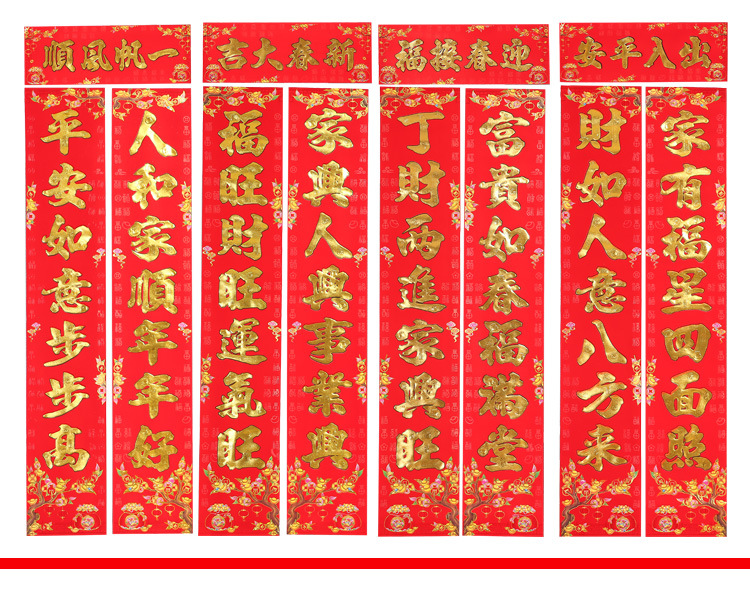 出入平安
家有福星四面照
財如人意八方来
迎春接福
富貴如春福滿堂
丁財兩進家興旺
新春大吉
家興人興事業興
福旺財旺運氣旺
一帆風順
人和家順年年好
平安如意步步高